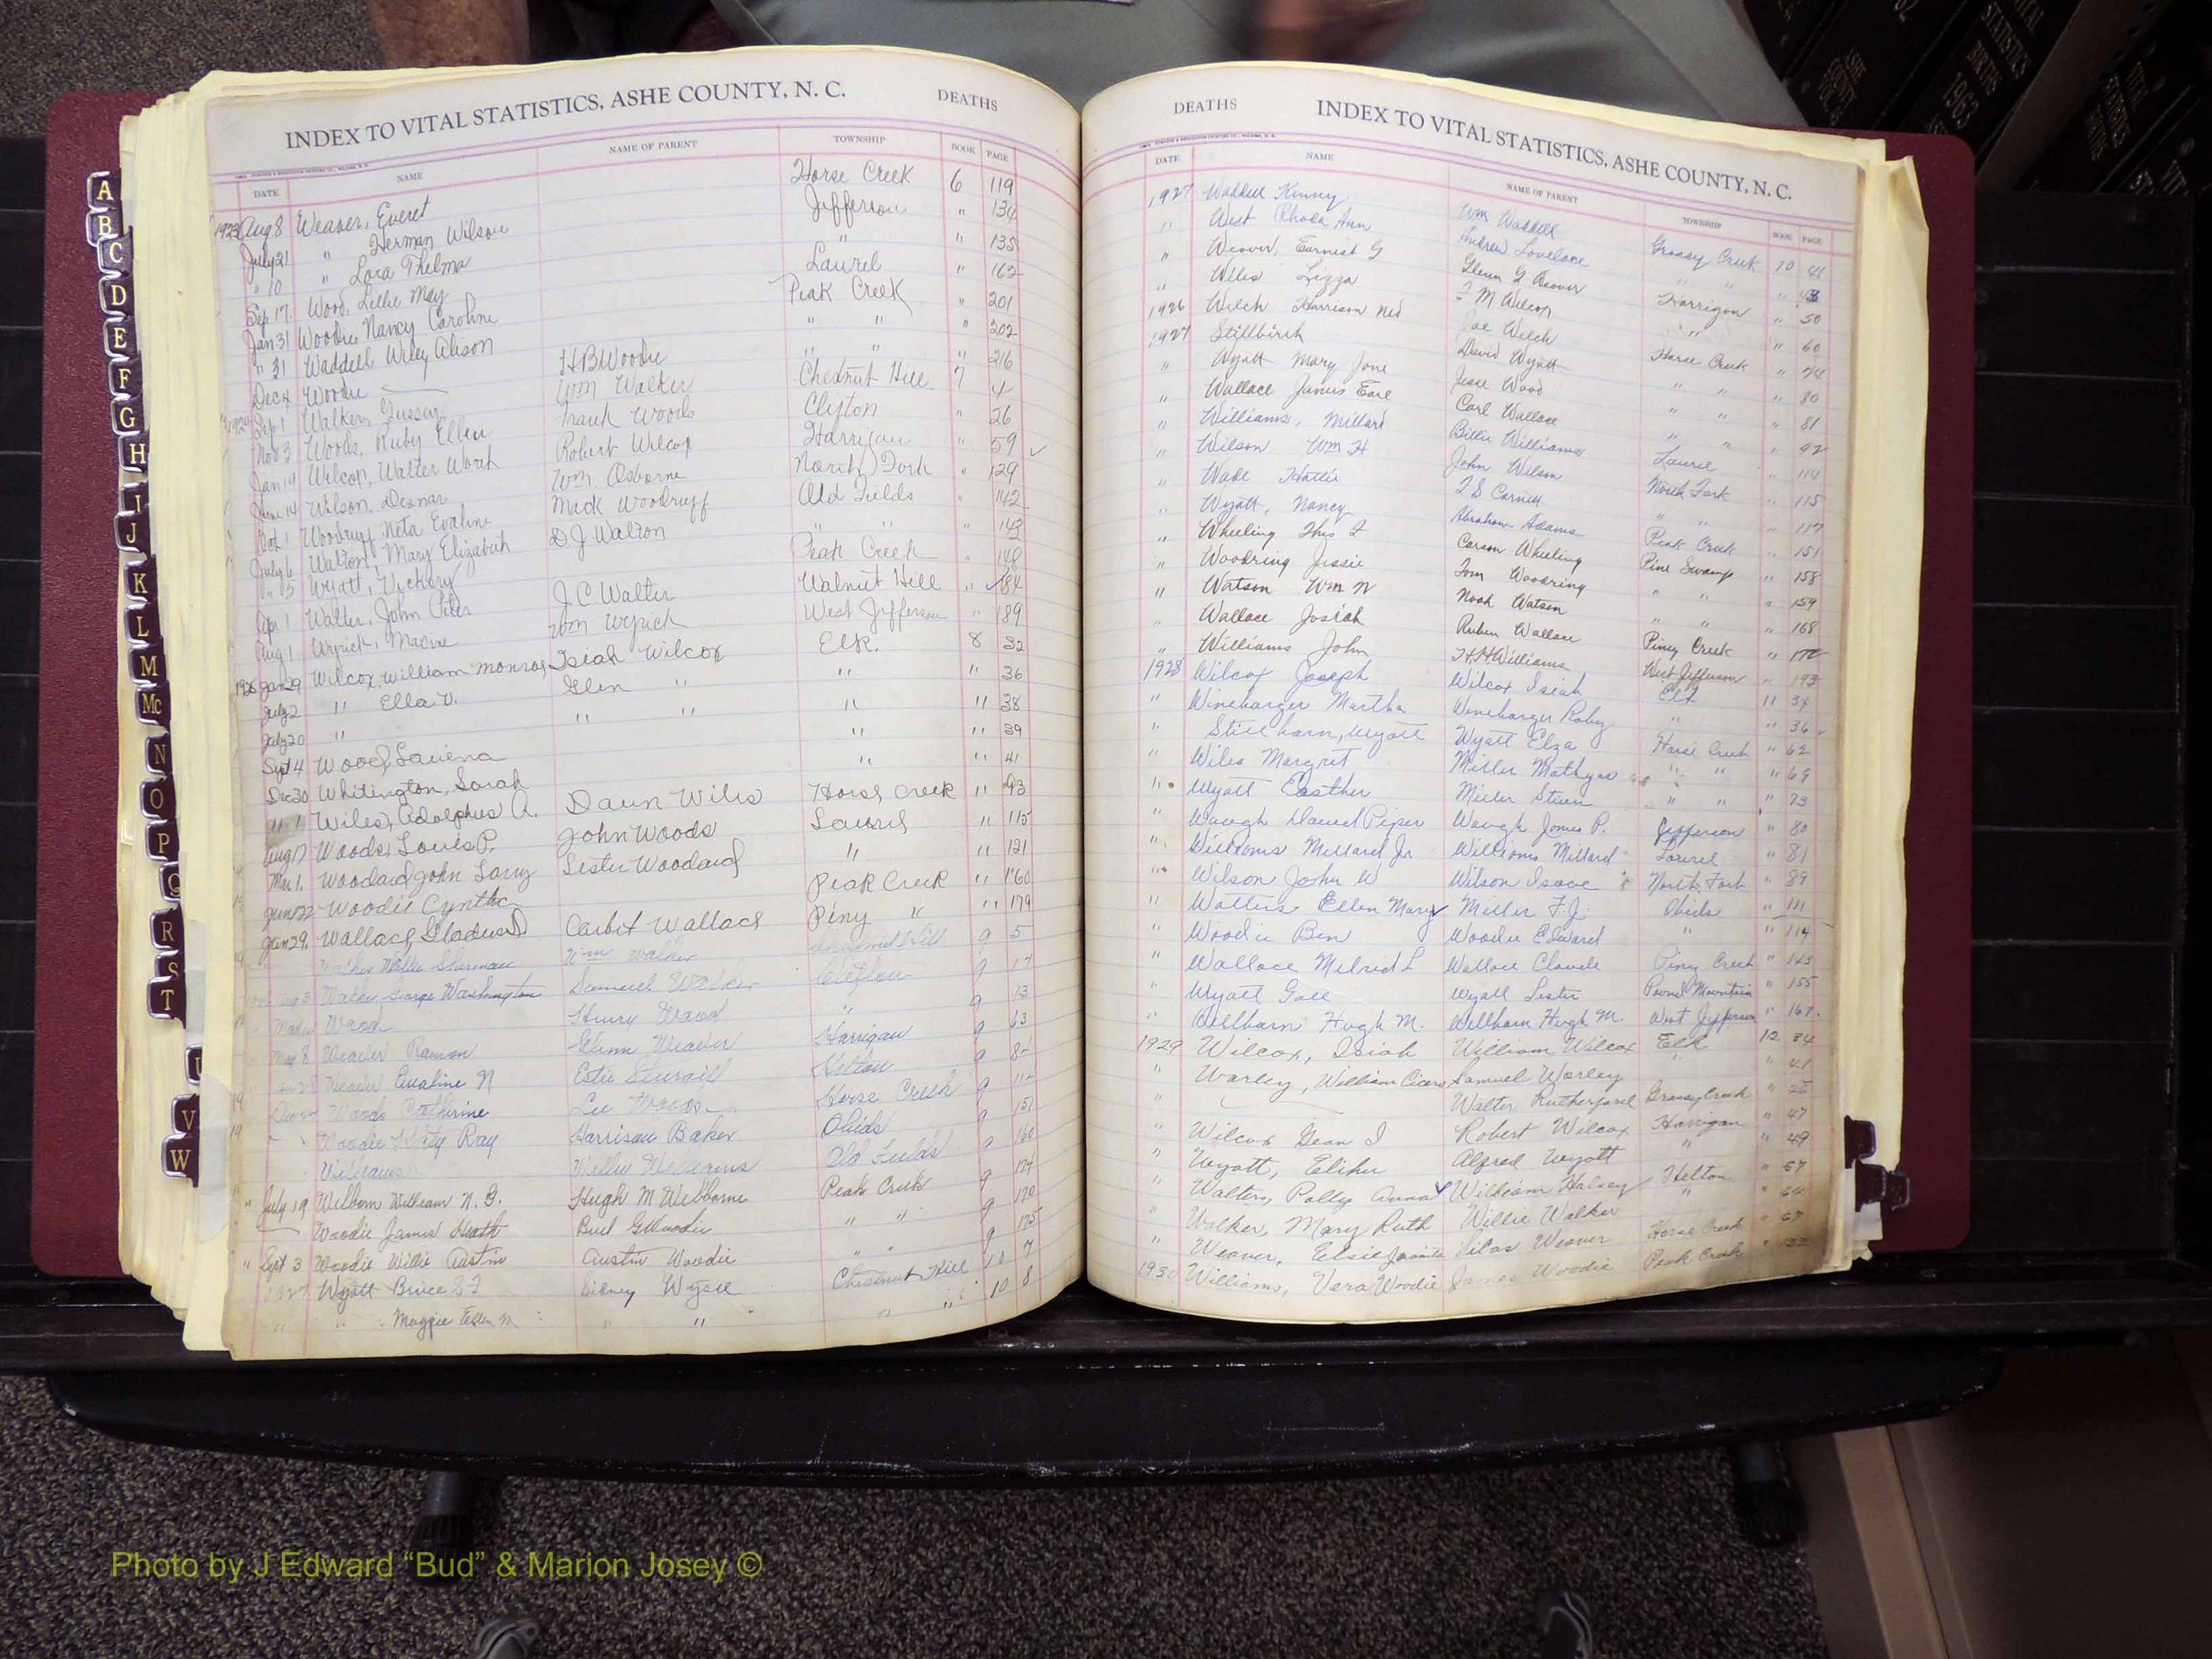 INDEX TO VITAL STATISTICS, ASHE COUNTY, N. C. DEATHS
DATE NAME NAME OF PARENT TOWNSHIP BOOK PAGE
1923 Aug 8 Weaver, Everet Horse Creek 6 119
July 21 " Herman Wilson Jefferson " 134
" 10 " Lora Thelma " " 135
Sep 17 Wood, Lillie May Laurel " 162
Jan 31 Woodie, Nancy Caroline Peak Creek " 201
" 31 Waddell Wiley Alison " " " 202
Dec 4 Woodie H B Woodie " " " 216
Sep 1 Walker, Wm Walker Chestnut Hill 7 4
Nov 3 Woods, Ruby Ellen Frank Woods Clifton " 26
Jan 19 Wilcox, Walter Worth Robert Wilcox Harrigan " 59
June 14 Wilson, Wm Osborne North Fork " 129
Oct 1 Woodruff, Neta Evaline Mack Woodruff Old Fields " 142
July 6 Walton, Mary Elizabeth D. J Walton " " " 143
" 5 Wyatt, Vickery Peak Creek "
Apr 1 Walter, John Peter J. C Walter Walnut Hill " 184
Aug 1 Wyrick, Maxine Wm Wyrick West Jefferson " 189
Jan 29 Wilcox, William Monroe Isiah Wilcox Elk. 8 32
July 2 " Ella V. Glen " " " 36
July 20 " " " " " 38
Sept 4 Wood, Laviena " " 39
Dec 30 Whitington, Sarah " " 41
Wiles, Adolphus A. Daun Wiles Horse Creek " 93
Aug 17 Woods, Louis P. John Woods Laurel " 115
Mar 1. Woodard John Larry Lester Woodard " " 121
Jan 22 Woodie Cynthc Peak Creek " 160
Jan 29. Wallace, Carbet Wallace Piny " " 179
Walker Willie Sherman Wm Walker 9 5
Walker George Washington Samuel Walker Clifton 9 17
Wood Henry Wood " 9 13
May 8 Weaver Ramon Glenn Weaver Harrigan 9 63
Weaver Emaline N Estie Sturgill Helton 9
Woods Catherine Lee Woods Horse Creek 9
Woodie Katy Ray Harrison Baker Obids 9 151
Williams Willie Williams Old Fields 9 160
" July 19. Welborn William N. G. Hugh M Welborne Peak Creek 9 174
Woodie James Heath " " 9 170
" Sept 3 Woodie Willie Austin Austin Woodie " " 9 175
1927 Wyatt Bruce S. Sidney Wyatt Chestnut Hill 10 7
" " Maggie Ellen M. " " " " 10 8
DEATHS INDEX TO VITAL STATISTICS, ASHE COUNTY, N. C.
DATE NAME NAME OF PARENT TOWNSHIP BOOK PAGE
1927 Waddell Kinny Wm Waddell Grassy Creek 10 41
" West Rhoda Ann Andrew Lovelace " " "
" Weaver, Earnest G Glenn G Weaver Harrigan " 50
" Wiles Lizza M Wilcox " " 60
1926 Welch Harrison Ned Joe Welch Horse Creek " 74
1927 Stillbirth David Wyatt " " " 80
" Wyatt Mary Jane Jesse Wood " " " 81
" Wallace James Earl Carl Wallace " " " 92
" Williams, Millard Billie Williams Laurel " 114
" Wilson Wm H John Wilson North Fork " 115
" Wade Hattie " " " 117
" Wyatt, Nancy Abraham Adams Peak Creek " 151
" Wheeling Carson Wheeling Pine Swamp " 158
" Woodring Jessie Tom Woodring " " " 159
" Watson Wm N Noah Watson " " " 168
" Wallace Josiah Ruben Wallace Piney Creek " 172
" Williams John H. H Williams West Jefferson " 193
1928 Wilcox Joseph Wilcox Isiah Elk 11 34
" Winebarger Martha Winebarger Roby " " 36
" Stillborn, Wyatt Wyatt Elza Horse Creek " 62
" Wiles Margret Miller " " " 69
" Wyatt Easther Miller " " " 73
" Waugh Daniel Piper Waugh James P. Jefferson " 80
" Williams Millard Jr Williams Millard Laurel " 81
" Wilson John W Wilson Isaac North Fork " 89
" Watters Ellen Mary Miller F. J. Obids " 111
" Woodie Ben Woodie Edward " " 114
" Wallace Milrid L Wallace Claude Piney Creek " 143
" Wyatt Gale Wyatt Lester Pond Mountain " 155
" Willborn Hugh M. Willborn Hugh M. West Jefferson " 167
1929 Wilcox, Isiah William Wilcox Elk 12 34
" Worley, William Cicero Samuel Worley " " 41
" Walter Rutherford Grassy Creek "
" Wilcox Gean I Robert Wilcox Harrigan " 47
" Wyatt, Elihu Alfred Wyatt " " 49
" Walters, Polly Anna William Halsey Helton " 57
" Walker, Mary Ruth Willie Walker " " 64
" Weaver, Elsie Juanita Silas Weaver Horse Creek " 67
1930 Williams, Vera Woodie James Woodie Peak Creek "
A
B
C
D
E
F
G
H
I
J
K
L
M
Mc
N
O
P
Q
R
S
T
U
V
W
VITAL STATISTICS BIRTHS 1963
Photo by J Edward “Bud” & Marion Josey ©